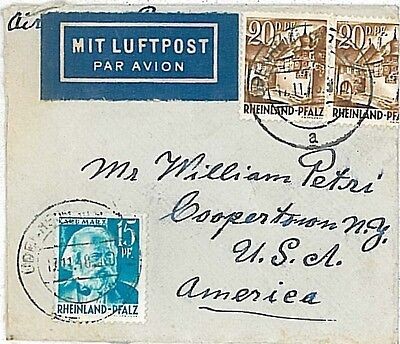 Air
MIT LUFTPOST
PAR AVION
20 D.PF.
20 D.PF.
RHEINLAND-PFALZ
RHEINLAND-PFALZ
a
Mr William Petri
Coopertown N.Y.
U.S.A.
America
KARL MARX
15
PF.
RHEINLAND-PFALZ